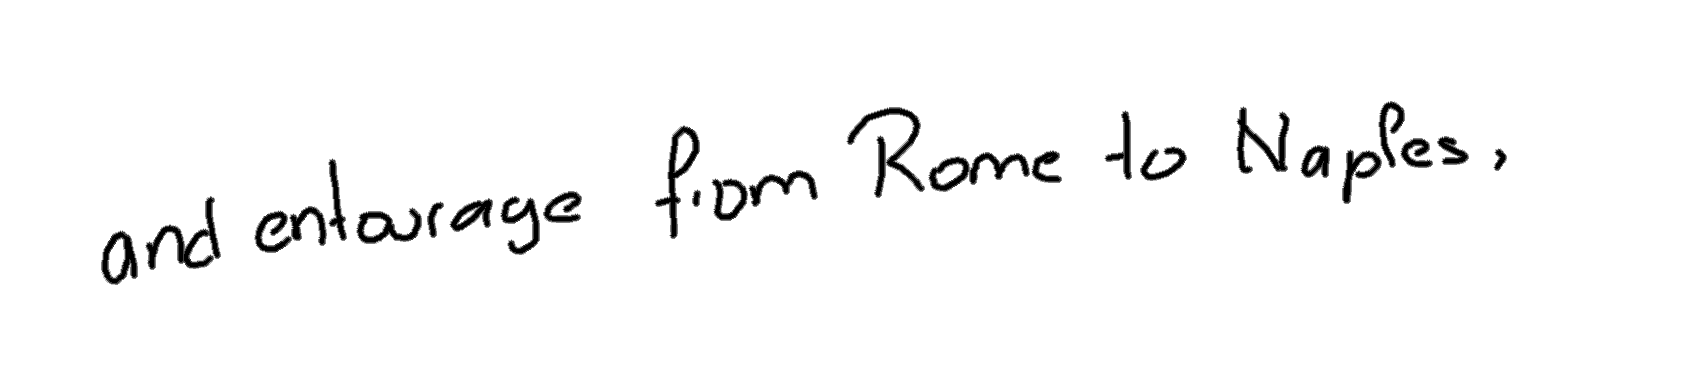 and entourage from Rome to Naples,